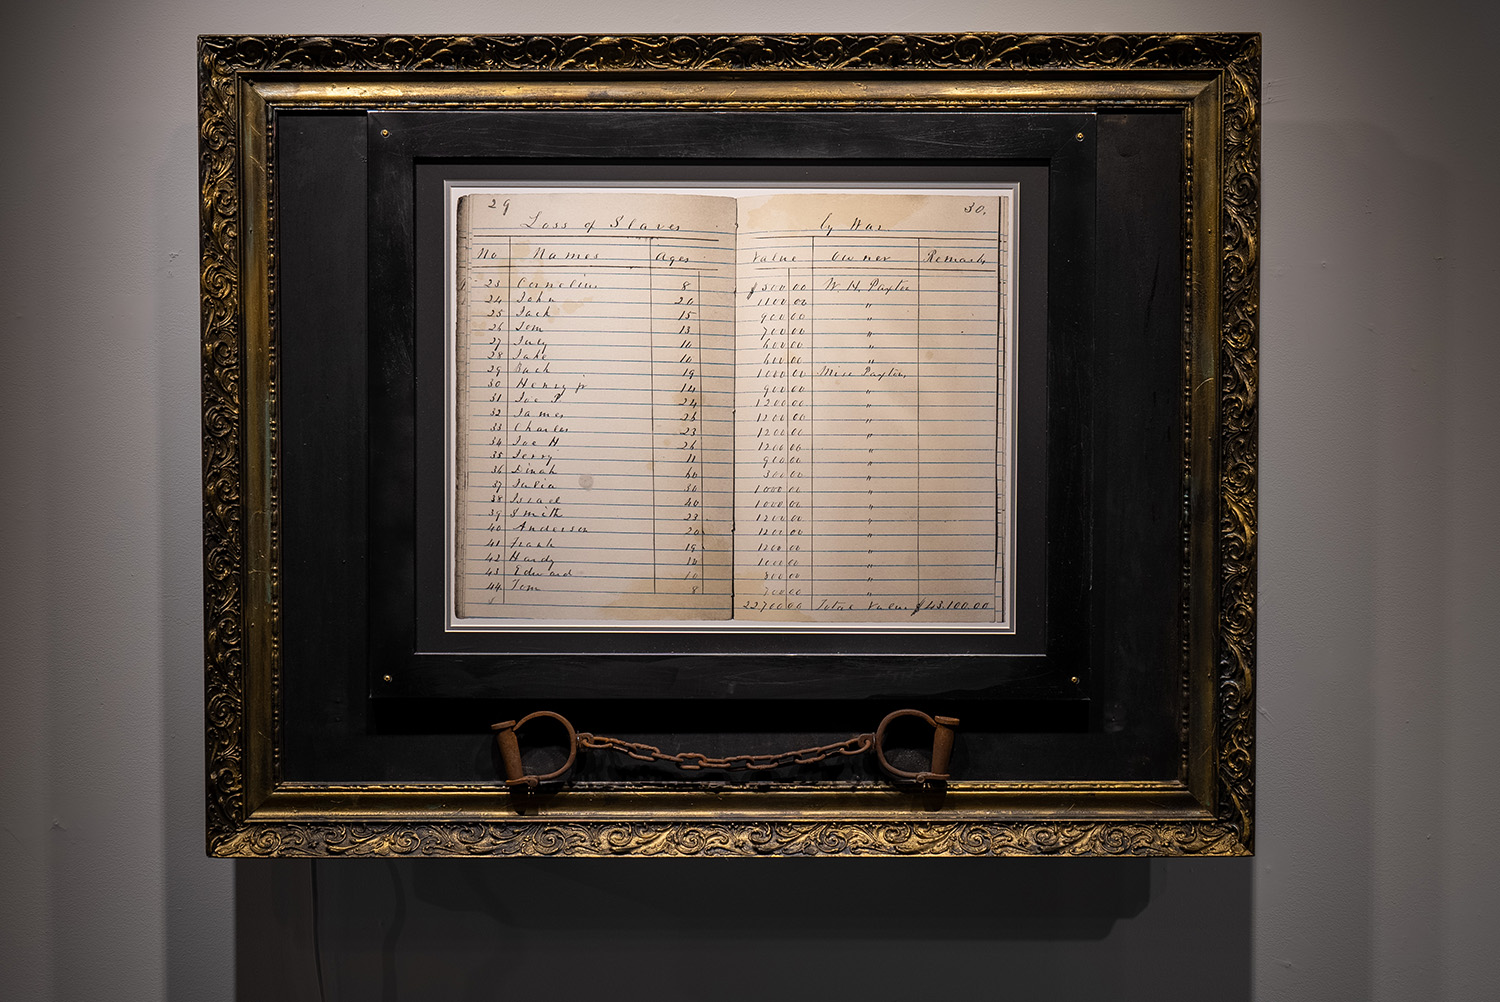 29 30.
Loss of Slaves by War
No Names Ages Value Owner Remark
23 Cornelius 8 $500.00 W. H. Paxton
24 John 20 1100.00 "
25 Jack 15 900.00 "
26 Tom 13 700.00 "
27 July 10 600.00 "
28 Jake 10 600.00 "
29 19 1000.00 Miss Paxton,
30 Henry jr 14 900.00 "
31 Joe P 24 1200.00 "
32 James 26 1200.00 "
33 Charles 23 1200.00 "
34 Joe H 26 1200.00 "
35 Jerry 11 900.00 "
36 Dinah 60 300.00 "
37 Julia 30 1000.00 "
38 Israel 40 1000.00 "
39 Smith 23 1200.00 "
40 Anderson 20 1200.00 "
41 Frank 19 1200.00 "
42 Hardy 1000.00 "
43 Edward 10 800.00 "
44 Tom 8 700.00 "
22700.00 Total Value $43,100.00